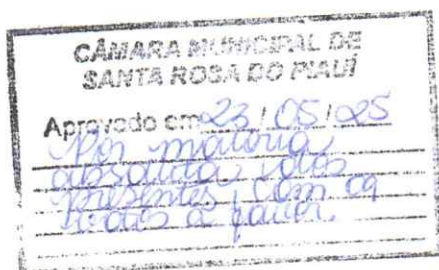 CÂMARA MUNICIPAL DE
SANTA ROSA DO PIAUÍ
Aprovado em 23/05/25
Por maioria
absoluta dos
presentes, com 09
votos a favor.